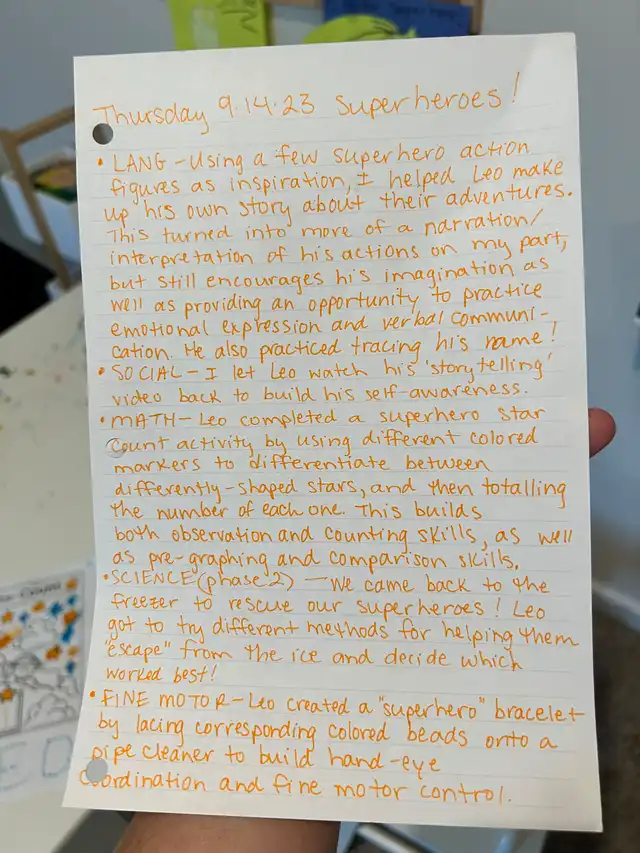 Thursday 9.14.23 Superheroes!
• LANG - Using a few superhero action
figures as inspiration, I helped Leo make
up his own story about their adventures.
This turned into more of a narration/
interpretation of his actions on my part,
but still encourages his imagination as
well as providing an opportunity to practice
emotional expression and verbal communi-
cation. He also practiced tracing his name!
• SOCIAL - I let Leo watch his 'storytelling'
video back to build his self-awareness.
• MATH - Leo completed a superhero star
count activity by using different colored
markers to differentiate between
differently-shaped stars, and then totalling
the number of each one. This builds
both observation and counting skills, as well
as pre-graphing and comparison skills.
• SCIENCE (phase 2) - We came back to the
freezer to rescue our superheroes! Leo
got to try different methods for helping them
"escape" from the ice and decide which
worked best!
• FINE MOTOR - Leo created a "superhero" bracelet
by lacing corresponding colored beads onto a
pipe cleaner to build hand-eye
coordination and fine motor control.